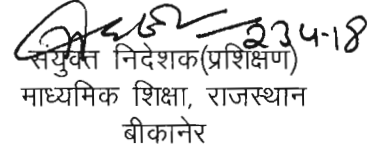 23-4-18
संयुक्त निदेशक(प्रशिक्षण)
माध्यमिक शिक्षा, राजस्थान
बीकानेर